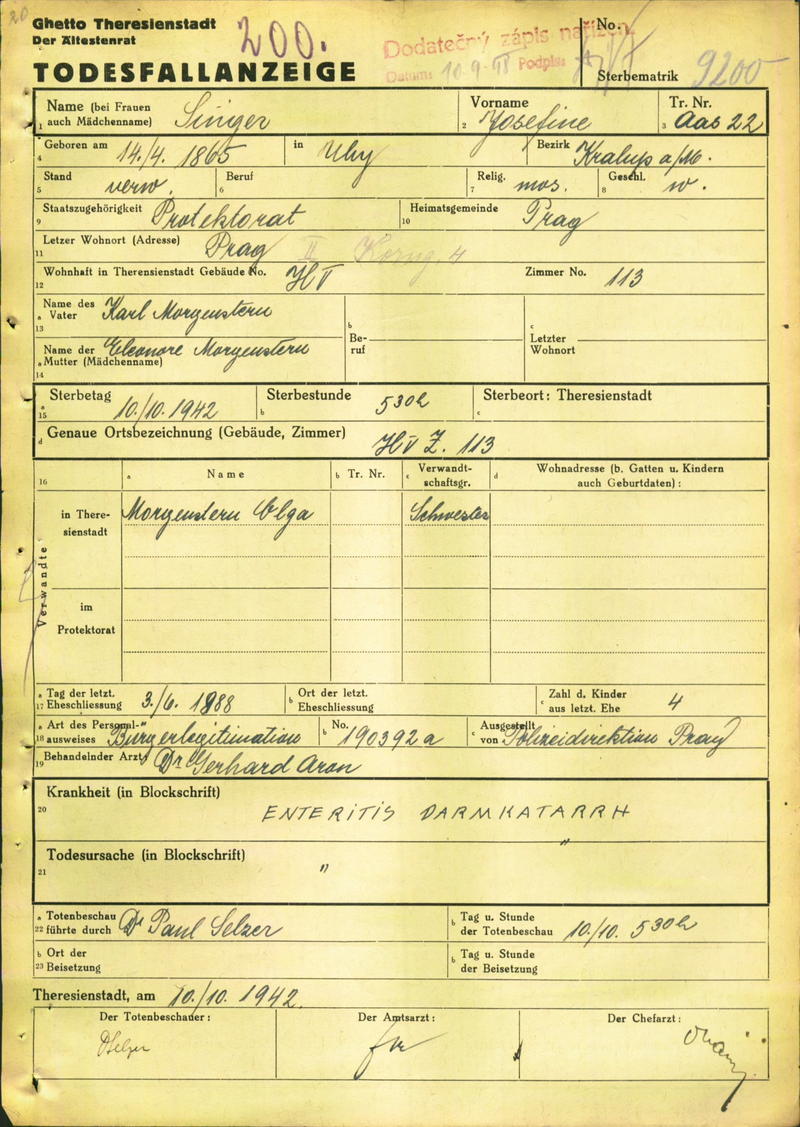 20
Ghetto Theresienstadt
Der Ältestenrat
200.
TODESFALLANZEIGE
Dodatečný zápis nařízen.
Datum: 10.9.48 Podpis:
No.
Sterbematrik 9200
Name (bei Frauen auch Mädchenname) Singer
Vorname Josefine
Tr. Nr. Aas 22
1 2 3
Geboren am 14./4. 1865 in Uhy Bezirk Kralup a/M.
4
Stand verw. Beruf Relig. mos. Geschl. w.
5 6 7 8
Staatszugehörigkeit Protektorat Heimatsgemeinde Prag
9 10
Letzer Wohnort (Adresse) Prag II 4
11
Wohnhaft in Theresienstadt Gebäude No. HV Zimmer No. 113
12
Name des Vater Karl Morgenstern
a 13 b c
Be-ruf
Letzter Wohnort
Name der Mutter (Mädchenname) Eleonore Morgenstern
a 14
Sterbetag 10./10. 1942 Sterbestunde 5 30 h Sterbeort: Theresienstadt
a 15 b c
d Genaue Ortsbezeichnung (Gebäude, Zimmer) HV Z. 113
16 a Name b Tr. Nr. c Verwandt-schaftsgr. d Wohnadresse (b. Gatten u. Kindern auch Geburtdaten):
Verwandte
in There-sienstadt Morgenstern Olga Schwester
im Protektorat
a 17 Tag der letzt. Eheschliessung 3./6. 1888 b Ort der letzt. Eheschliessung c Zahl d. Kinder aus letzt. Ehe 4
a 18 Art des Personal-ausweises Bürgerlegitimation b No. 190392a c Ausgestellt von Polizeidirektion Prag
19 Behandelnder Arzt Dr Gerhard Aron
Krankheit (in Blockschrift)
20 ENTERITIS DARMKATARRH
Todesursache (in Blockschrift)
21 " "
a 22 Totenbeschau führte durch Dr Paul Selzer b Tag u. Stunde der Totenbeschau 10./10. 5 30 h
b 23 Ort der Beisetzung b Tag u. Stunde der Beisetzung
Theresienstadt, am 10./10. 1942
Der Totenbeschauer: Der Amtsarzt: Der Chefarzt:
PSelzer